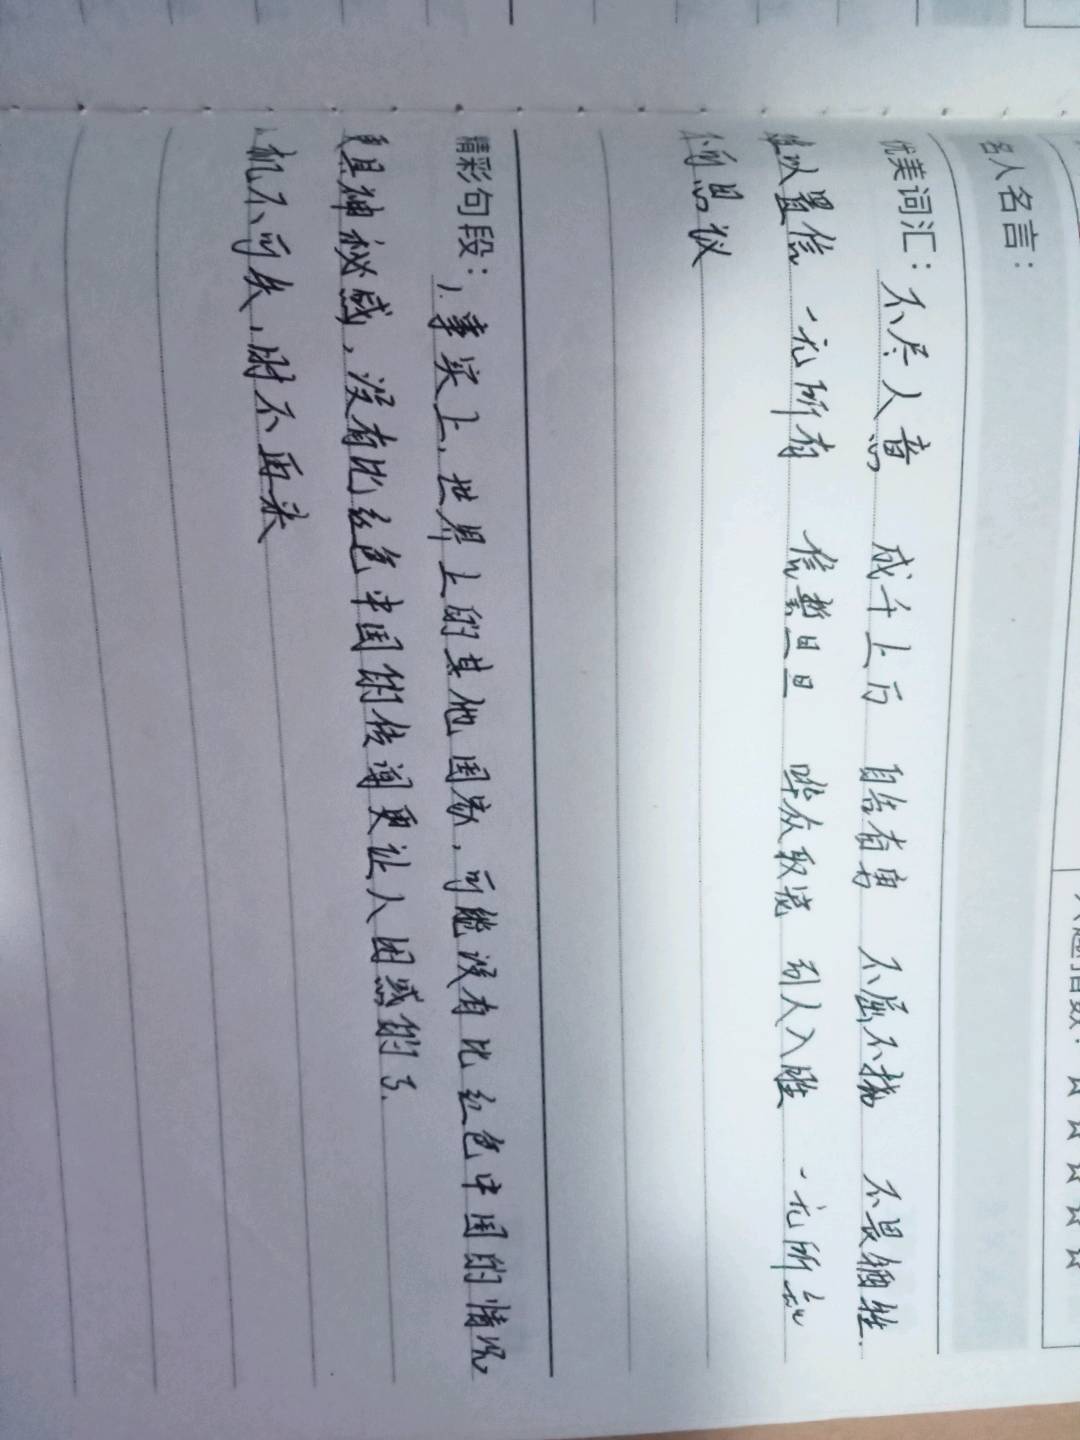 人题指数：☆☆☆☆☆
名人名言：
优美词汇：不尽人意 成千上万 自告奋勇 不屈不挠 不畏牺牲
难以置信 一无所有 信誓旦旦 哗众取宠 引人入胜 一无所知
不可思议
精彩句段：1.事实上，世界上的其他国家，可能没有比红色中国的情况
更具神秘感，没有比红色中国的传闻更让人困惑的了.
2.机不可失，时不再来